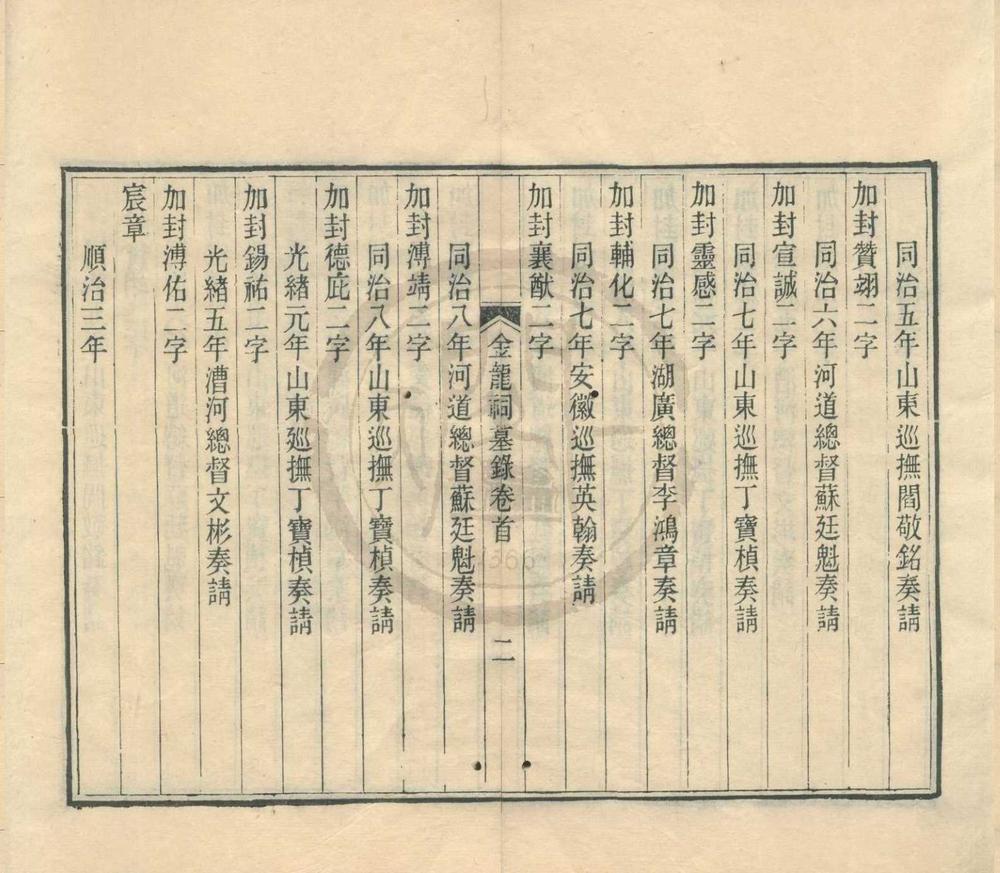 同治五年山東巡撫閻敬銘奏請
加封贊翊二字
同治六年河道總督蘇廷魁奏請
加封宣誠二字
同治七年山東巡撫丁寶楨奏請
加封靈感二字
同治七年湖廣總督李鴻章奏請
加封輔化二字
同治七年安徽巡撫英翰奏請
加封襄猷二字
金龍祠墓錄卷首
二
同治八年河道總督蘇廷魁奏請
加封溥靖二字
同治八年山東巡撫丁寶楨奏請
加封德庇二字
光緒元年山東巡撫丁寶楨奏請
加封錫祐二字
光緒五年漕河總督文彬奏請
加封溥佑二字
宸章
順治三年